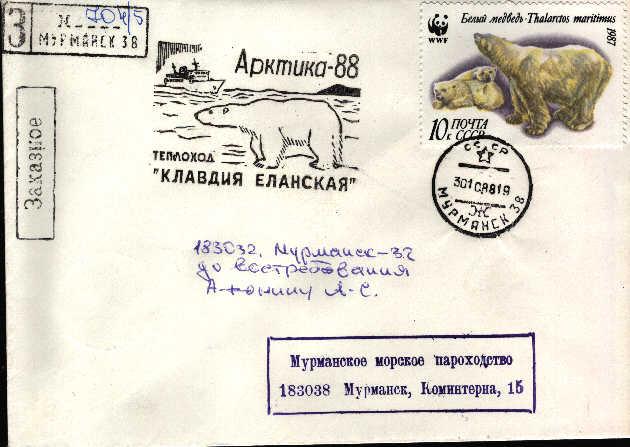 З
№ 704/5
МУРМАНСК 38
Заказное
Арктика-88
ТЕПЛОХОД
"КЛАВДИЯ ЕЛАНСКАЯ"
WWF
Белый медведь·Thalarctos maritimus
1987
10к ПОЧТА
СССР
СССР
МУРМАНСК 38
183032, Мурманск-32
до востребования
Мурманское морское пароходство
183038 Мурманск, Коминтерна, 15